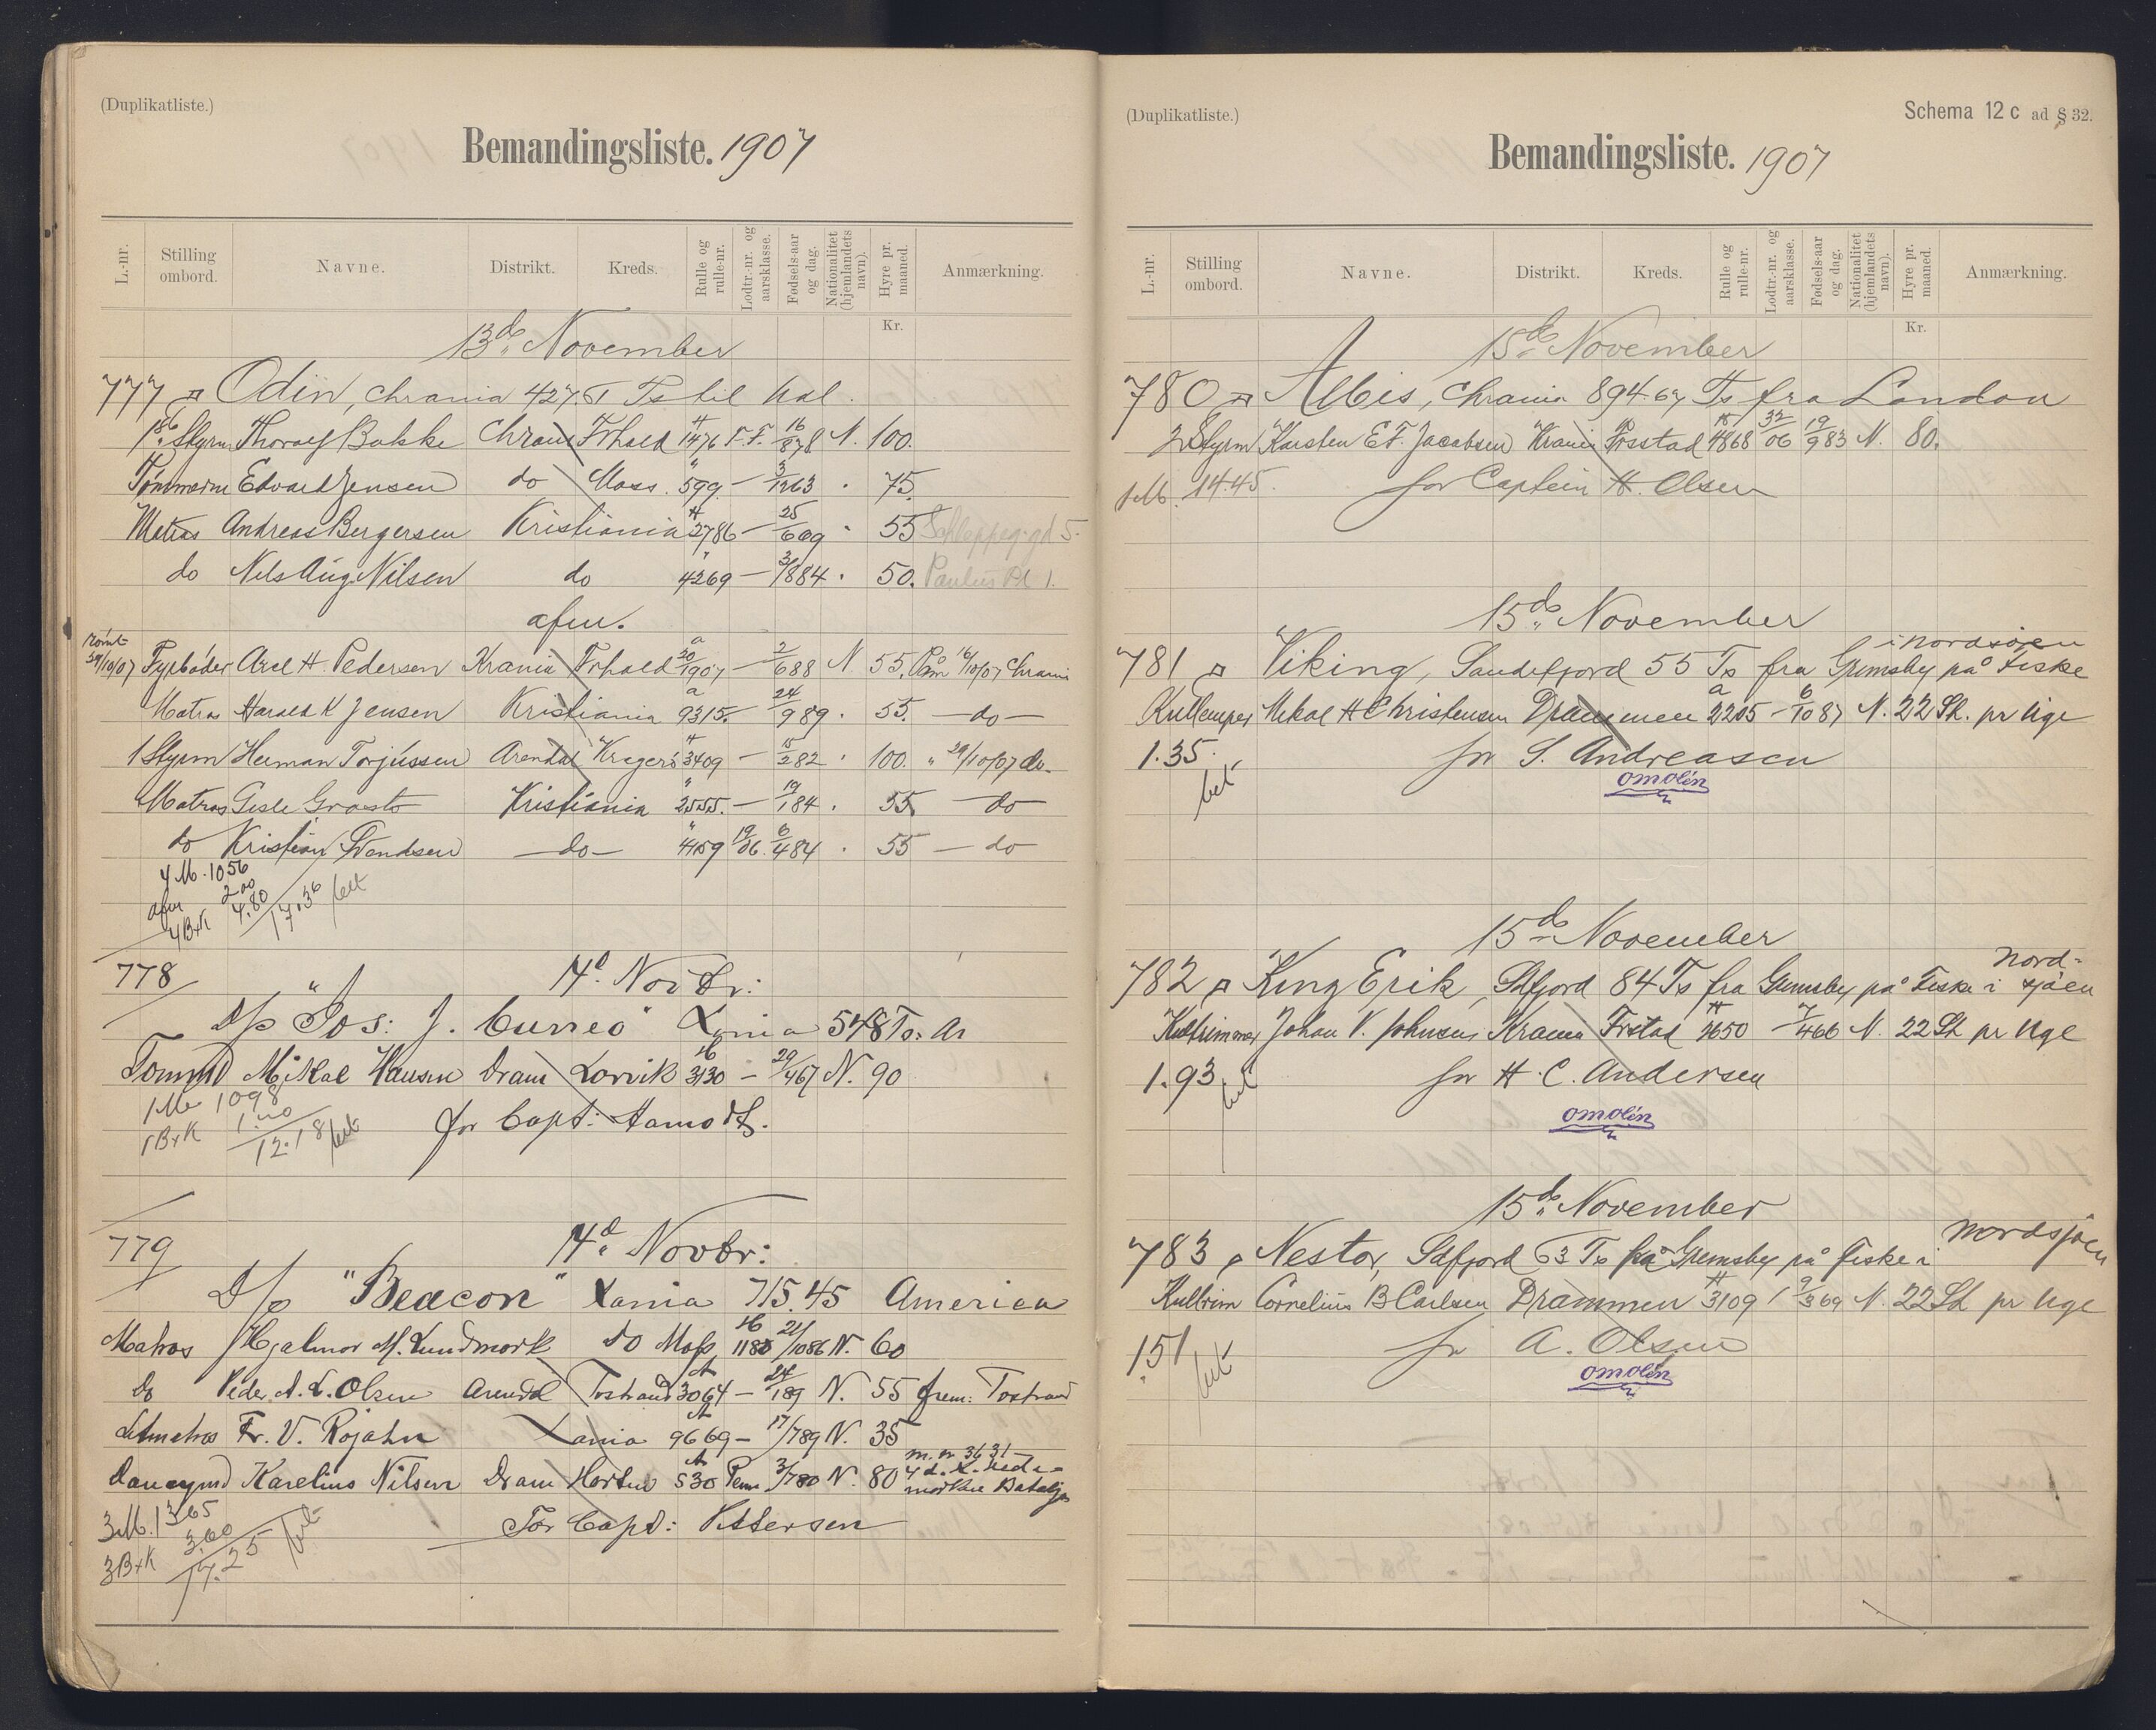 (Duplikatliste.)
Bemandingsliste. 1907
L.-nr.
Stilling ombord.
Navne.
Distrikt.
Kreds.
Rulle og rulle-nr.
Lodtr.-nr. og aarsklasse.
Fødsels-aar og dag.
Nationalitet (hjemlandets navn).
Hyre pr. maaned.
Anmærkning.
Kr.
13de November
777 Odin, Chrania 427. Ts til Hal.
1ste Styrm Thoralf Bakke Chrania Frhald 1476 F.F. 16/878 N. 100.
Tømmerm Edvard Jensen do Moss 599 — 3/1263 " 75.
Matros Andreas Bergersen Kristiania 2786 — 25/669 " 55
do Nels Aug Nilsen do 4269 — 3/884 " 50. Paulus Pl 1.
afm.
rømt 30/10/07 Fyrbøder Axel H. Pedersen Krania Frhald 1907 — 2/688 N 55. Påm 16/10/07 Chrania
Matros Harald K Jensen Kristiania 9315. 24/989 " 55. — do —
1 Styrm Herman Torjussen Arendal Kragerø 3409 — 15/282 " 100. " 29/10/07 do.
Matros Gisle Kristiania 2555. — 19/184 " 55 — do
do Kristian Svendsen — do — 4159 19/06 6/484 " 55 — do
4 M. 1056
afm 200
4 B+K 4.80
17.36 bet
778 14d Novbr:
D/s "Jos: J. Cuneo" Xania 548 Ts: Am
Tømmd Mikal Hansen Dram Larvik 3130 — 29/467 N. 90
1 M 1098
1 B+K 1.20
12.18 bet
for Capt: Aamodt.
779 14d Novbr:
D/s "Beacon" Xania 715.45 America
Matros Hjalmar M. Lundmark do Moss 1180 21/1086 N. 60
do Peder A. L. Olsen Arendal Tostrand 3064 — 24/189 N. 55 frem: Tostrand
Letmatros Fr. V. Rojahn Xania 9669 — 17/789 N. 35
Karelius Nilsen Dram Horten 530 3/780 N. 80 m. nr 3631
3 M. 1365
3 B+K 3.60
17.25 bet
For Capt: Pettersen
(Duplikatliste.)
Schema 12 c ad § 32.
Bemandingsliste. 1907
L.-nr.
Stilling ombord.
Navne.
Distrikt.
Kreds.
Rulle og rulle-nr.
Lodtr.-nr. og aarsklasse.
Fødsels-aar og dag.
Nationalitet (hjemlandets navn).
Hyre pr. maaned.
Anmærkning.
Kr.
15de November
780 Albis, Chrania 894.67 Ts fra London
2 Styrm Karsten E F. Jacobsen Krania Frsstad 4868 32/06 19/983 N. 80.
1 M. 14.45. for Captein H. Olsen
15de November
781 Viking, Sandefjord 55 Ts fra Grimsby på Fiske i Nordsøen
Kultemper Mikal H Christensen Drammen 2205 — 6/1087 N. 22 Sh. pr Uge
1.35. bet for S. Andreasen
omolén
15de November
782 King Erik, Sdfjord 84 Ts fra Grimsby på Fiske i Nordsjöen
Kultrimmer Johan V. Johnsen Krania Frstad 2650 — 7/466 N. 22 Sh pr Uge
1.93 bet for H. C. Andersen
omolén
15de November
783 Nestor, Sdfjord 63 Ts fra Grimsby på Fiske i Nordsjöen
Kultrim Cornelius B Carlsen Drammen 3109 9/369 N. 22 Sh pr Uge
1.51 bet for A. Olsen
omolén